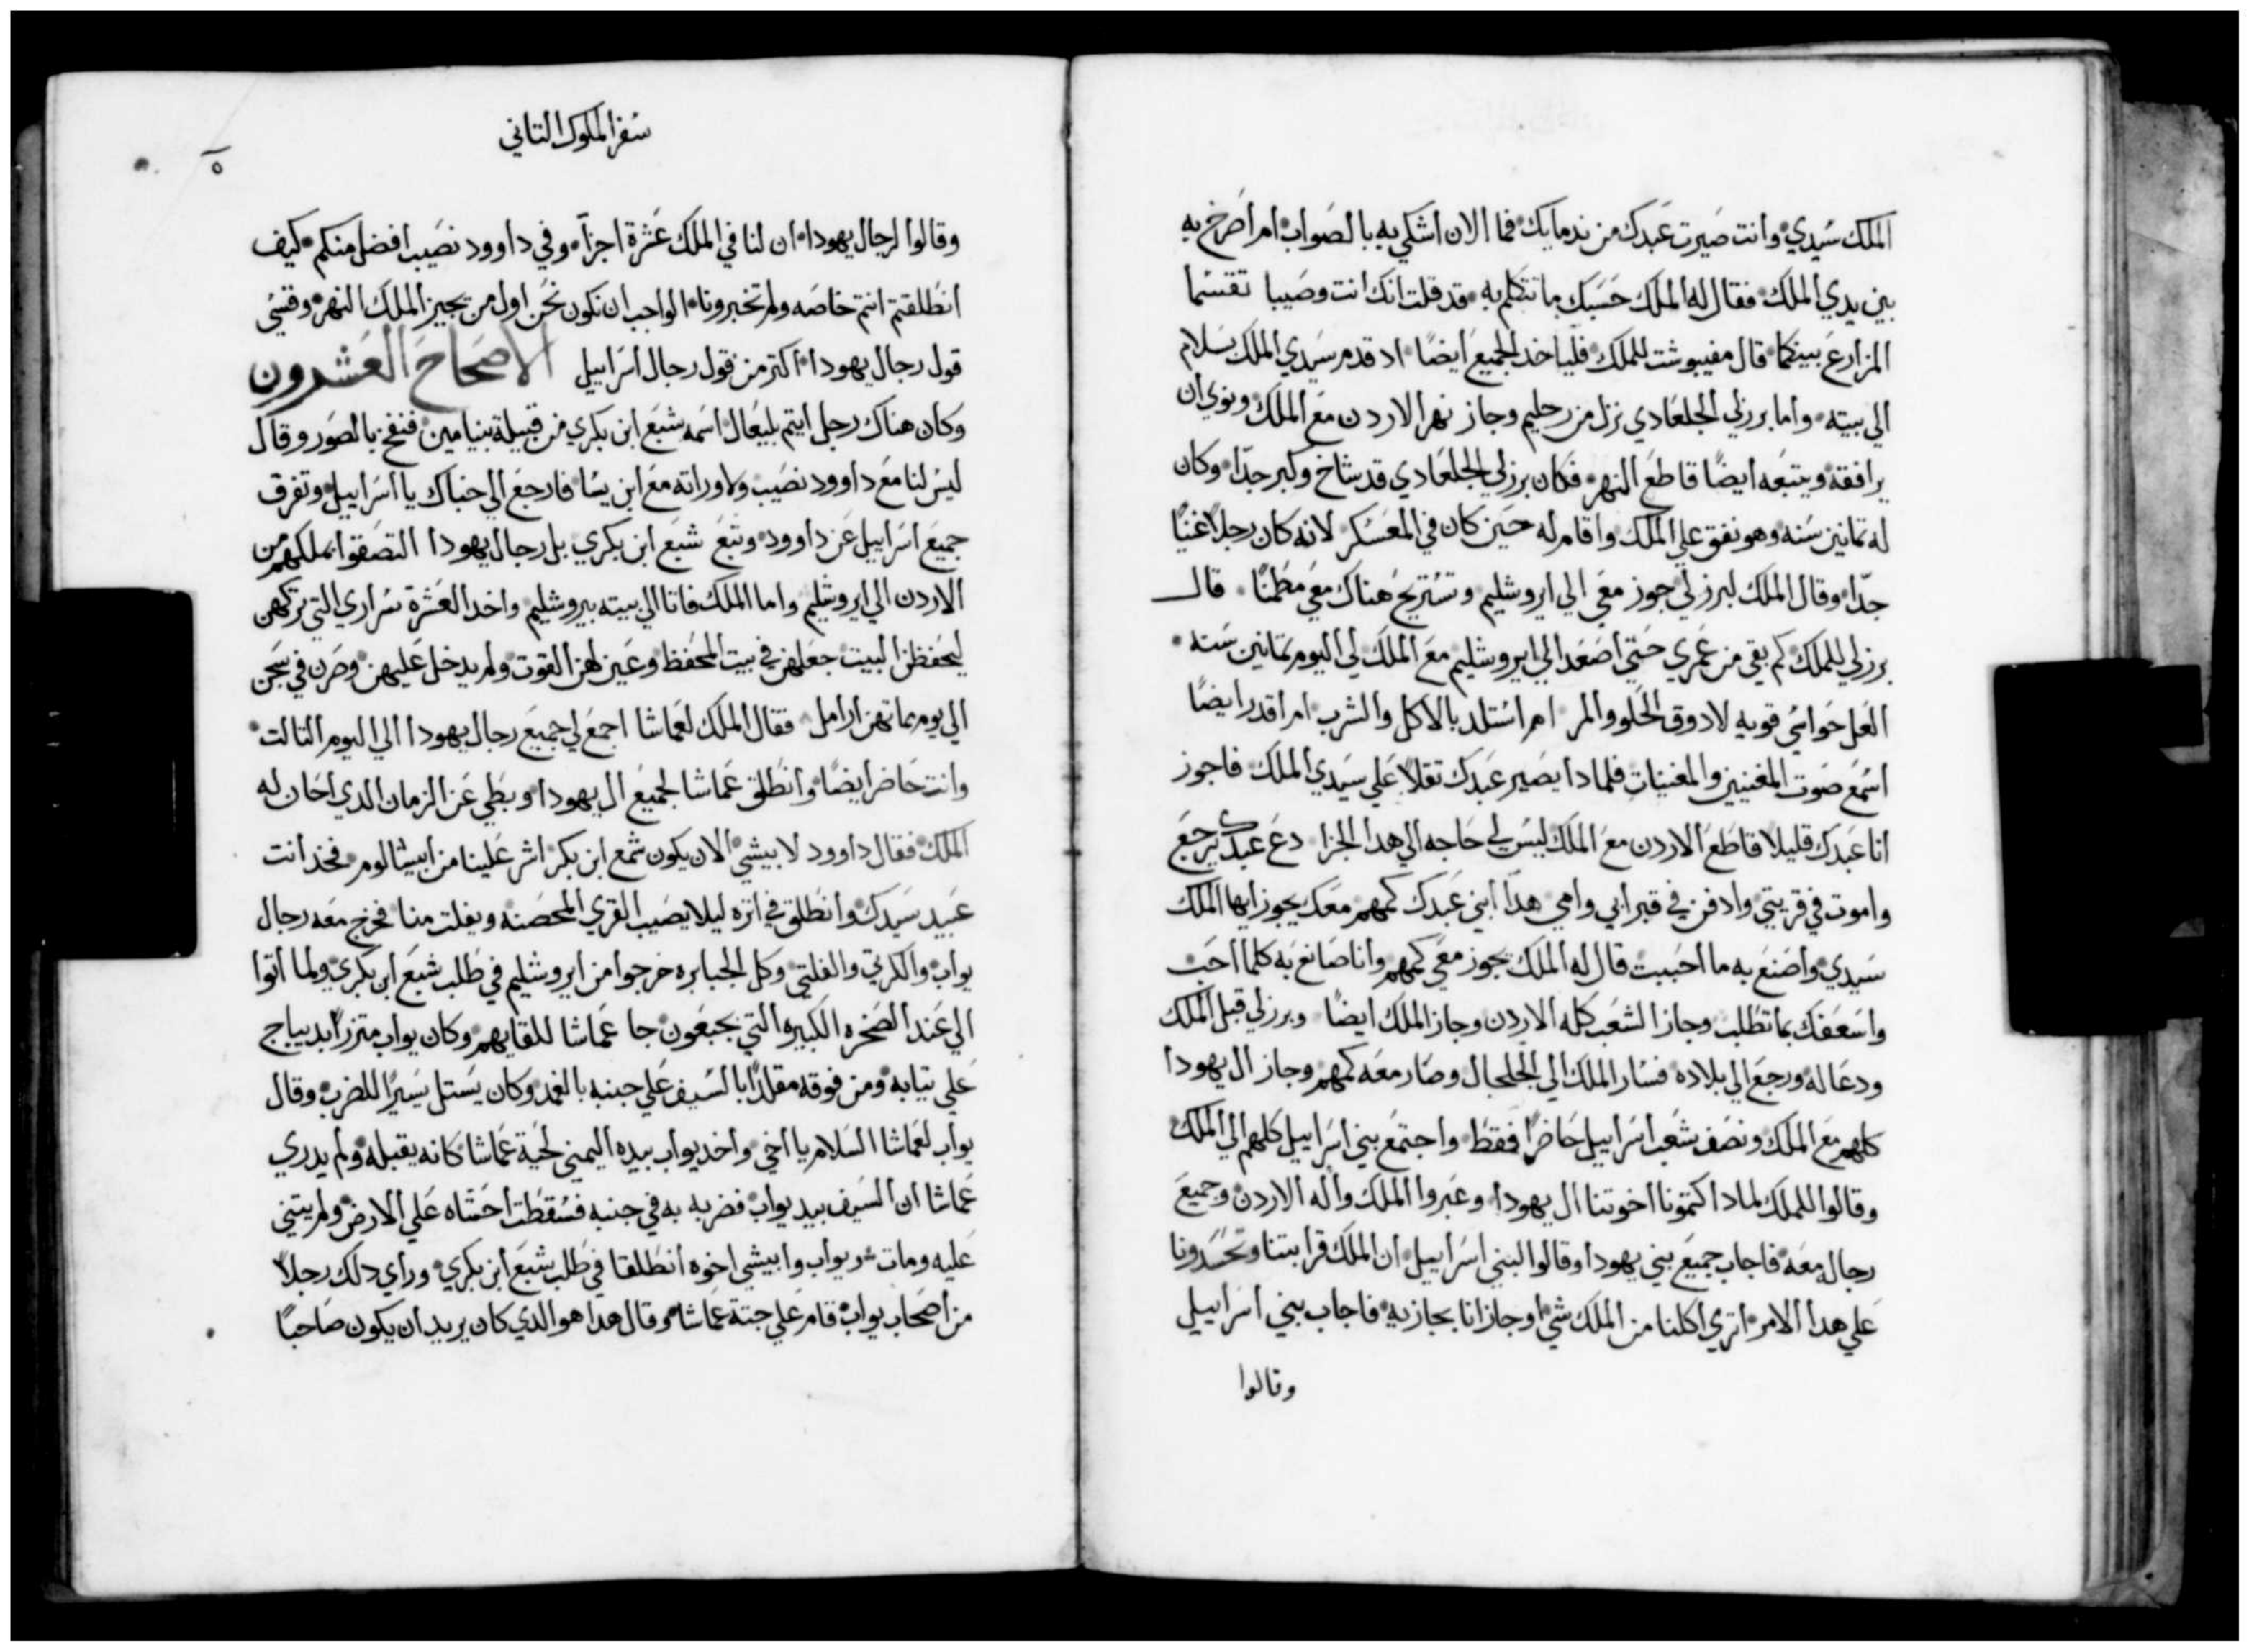 الملك سيدي وانت صيرت عبدك من ندمايك فما الان اشتكي به بالصواب ام اصرخ به
بين يدي الملك فقال له الملك حسبك ما تتكلم به قد قلت انك انت وصيبا تقسما
المزارع بينكما قال مفيبوشت للملك فلياخد الجميع ايضًا اد قدم سيدي الملك بسلام
الي بيته واما برزلي الجلعادي نزل من رجليم وجاز نهر الاردن مع الملك ونوي ان
يرافقه ويتبعه ايضًا قاطع النهر فكان برزلي الجلعادي قد شاخ وكبر جدّا وكان
له تمانين سنه وهو نفق علي الملك واقام له حين كان في المعسكر لانه كان رجلاً غنيًا
جدّا وقال الملك لبرزلي جوز معي الي ايروشليم وتستريح هناك معي مطمنًا قال
برزلي للملك كم بقي من عمري حتي اصعد الي ايروشليم مع الملك لي اليوم تمانين سنه
العل حواسي قويه لادوق الحلو والمر ام استلد بالاكل والشرب ام اقدر ايضًا
اسمع صوت المغنيين والمغنيات فلمادا يصير عبدك تقلاً علي سيدي الملك فاجوز
انا عبدك قليلا قاطع الاردن مع الملك ليس لي حاجه الي هدا الجزا دع عبدك يرجع
واموت في قريتي وادفن في قبر ابي وامي هدا ابني عبدك كمهم معك يجوز ايها الملك
سيدي واصنع به ما احببت قال له الملك يجوز معي كمهم وانا صانع به كلما احب
واسعفك بما تطلب وجاز الشعب كله الاردن وجاز الملك ايضًا وبرزلي قبل الملك
ودعا له ورجع الي بلاده فسار الملك الي الجلجال وصار معه كمهم وجاز ال يهودا
كلهم مع الملك ونصف شعب اسراييل حاضرًا فقط واجتمع بني اسراييل كلهم الي الملك
وقالوا للملك لمادا كتمونا اخوتنا ال يهودا وعبروا الملك واله الاردن وجميع
رجاله معه فاجاب جميع بني يهودا وقالوا لبني اسراييل ان الملك قرابتنا وتحسدونا
علي هدا الامر اتري اكلنا من الملك شي او جازانا بجازيه فاجاب بني اسراييل
وقالوا
سفر الملوك التاني
٥
وقالوا لرجال يهودا ان لنا في الملك عشرة اجزآ وفي داوود نصيب افضل منكم كيف
انطلقتم انتم خاصه ولم تخبرونا الواجب ان نكون نحن اول من يجيز الملك النهر وقسي
قول رجال يهودا اكتر من قول رجال اسراييل الاصحاح العشرون
وكان هناك رجل ايتم بليعال اسمه شبع ابن بكري من قبيلة بنيامين فنفخ بالصور وقال
ليس لنا مع داوود نصيب ولا وراته مع ابن يسا فارجع الي خباك يا اسراييل وتفرق
جميع اسراييل عن داوود وتبع شبع ابن بكري بل رجال يهودا التصقوا بملكهم من
الاردن الي ايروشليم واما الملك فاتا الي بيته بيروشليم واخد العشرة سراري التي تركهن
ليحفظن البيت جعلهن في بيت المحفظ وعين لهن القوت ولم يدخل عليهن وصرن في سجن
الي يوم مماتهن ارامل فقال الملك لعماشا اجمع لي جميع رجال يهودا الي اليوم التالت
وانت حاضر ايضًا وانطلق عماشا لجميع ال يهودا وبطي عن الزمان الدي احان له
الملك فقال داوود لابيشي الان يكون شمع ابن بكر اشر علينا من ابيشالوم فخد انت
عبيد سيدك وانطلق في اتره ليلا يصيب القري المحصنه ويفلت منا فخرج معه رجال
يواب والكرتي والفلتي وكل الجبابره خرجوا من ايروشليم في طلب شبع ابن بكري ولما اتوا
الي عند الصخره الكبيره التي بجبعون جا عماشا للقايهم وكان يواب متزرًا بديباج
علي تيابه ومن فوقه مقلدًا بالسيف علي جنبه بالغمد وكان يستل يسيرًا للضرب وقال
يواب لعماشا السلام يا اخي واخد يواب بيده اليمني لحية عماشا كانه يقبله ولم يدري
عماشا ان السيف بيد يواب فضربه به في جنبه فسقطت احشاه علي الارض ولم يتني
عليه ومات ويواب وابيشي اخوه انطلقا في طلب شبع ابن بكري وراي دلك رجلاً
من اصحاب يواب قام علي جتة عماشا وقال هدا هو الدي كان يريد ان يكون صاحبًا